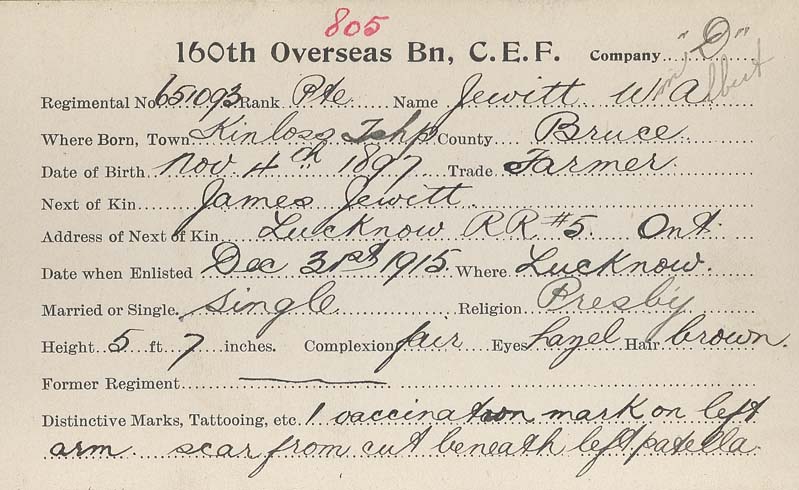 805
160th Overseas Bn, C.E.F. Company "D"
Regimental No. 651093 Rank Pte Name Jewitt Wm Albert
Where Born, Town Kinloss Tshp County Bruce
Date of Birth Nov. 4th 1897 Trade Farmer.
Next of Kin James Jewitt.
Address of Next of Kin Lucknow RR #5. Ont.
Date when Enlisted Dec 31st 1915. Where Lucknow.
Married or Single. Single Religion Presby
Height 5 ft 7 inches. Complexion fair Eyes hazel Hair brown.
Former Regiment
Distinctive Marks, Tattooing, etc. 1 vaccination mark on left
arm scar from cut beneath left patella.